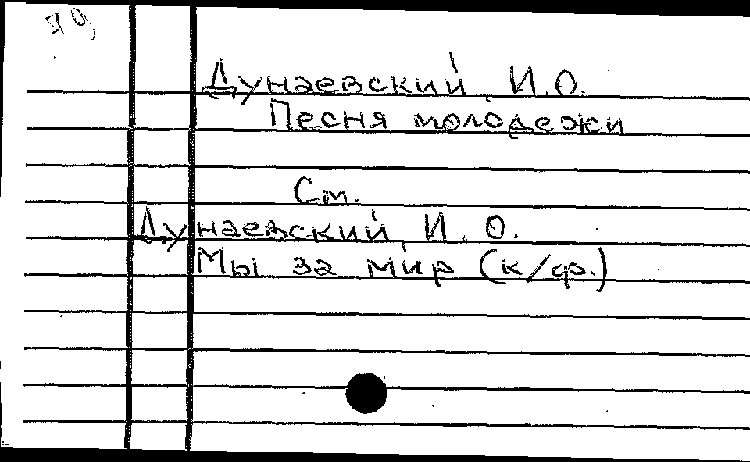 Дунаевский, И.О.
Песня молодежи
См.
Дунаевский, И.О.
Мы за мир (к/ф.)